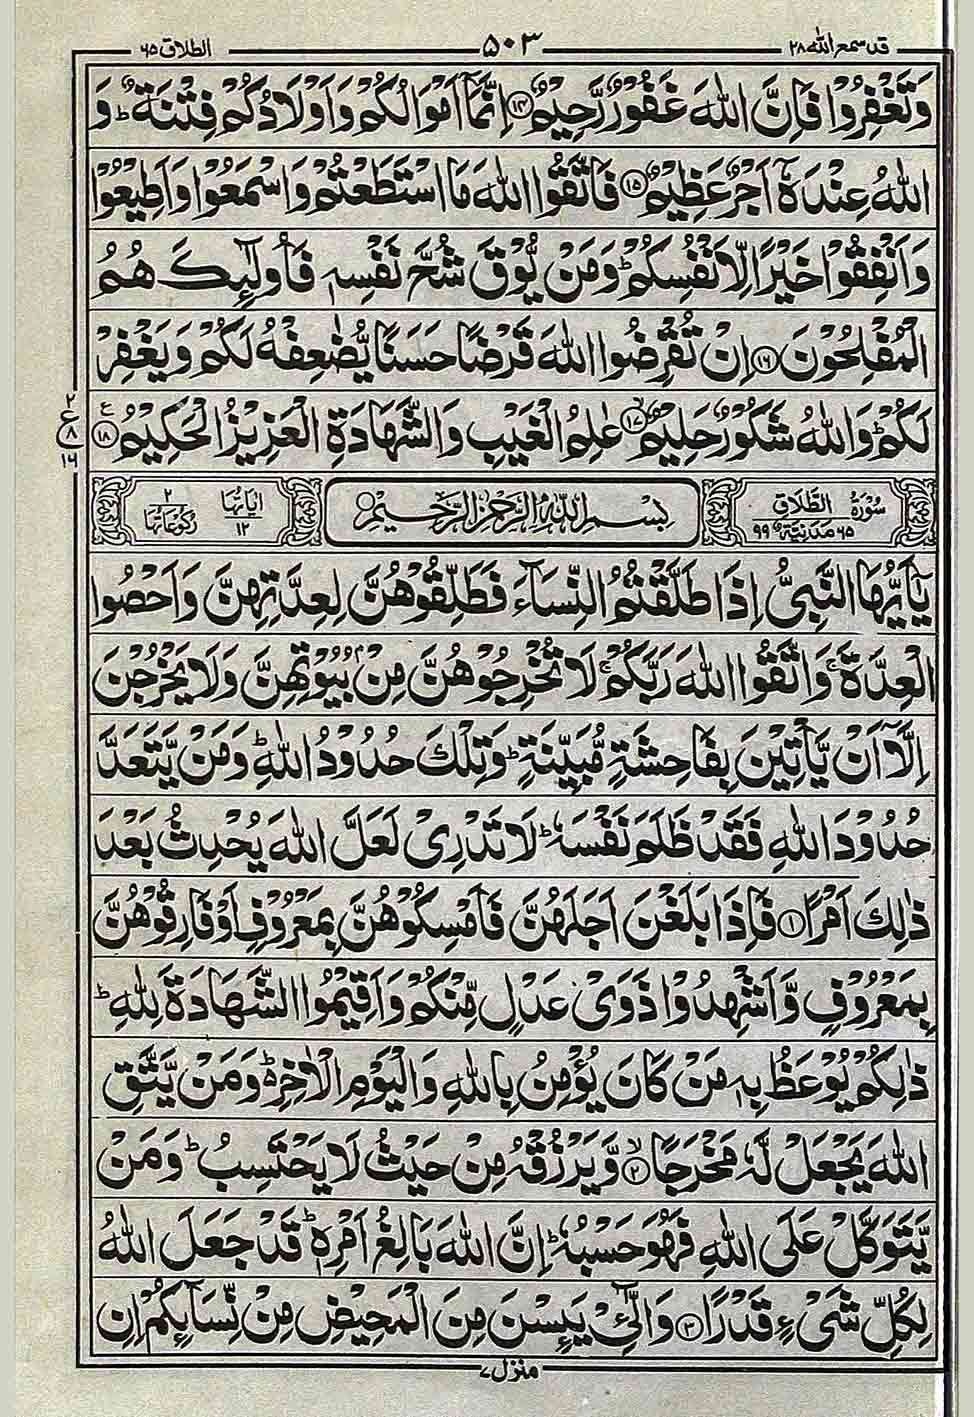 قد سمع الله ۲۸ ۵۰۳ الطلاق ۶۵
وَتَغْفِرُوْا فَاِنَّ اللّٰهَ غَفُوْرٌ رَّحِيْمٌ ۝۱۴ اِنَّمَاۤ اَمْوَالُكُمْ وَاَوْلَادُكُمْ فِتْنَةٌ ؕ وَ
اللّٰهُ عِنْدَهٗۤ اَجْرٌ عَظِيْمٌ ۝۱۵ فَاتَّقُوا اللّٰهَ مَا اسْتَطَعْتُمْ وَاسْمَعُوْا وَاَطِيْعُوْا
وَاَنْفِقُوْا خَيْرًا لِّاَنْفُسِكُمْ ؕ وَمَنْ يُّوْقَ شُحَّ نَفْسِهٖ فَاُولٰٓئِكَ هُمُ
الْمُفْلِحُوْنَ ۝۱۶ اِنْ تُقْرِضُوا اللّٰهَ قَرْضًا حَسَنًا يُّضٰعِفْهُ لَكُمْ وَيَغْفِرْ
لَكُمْ ؕ وَاللّٰهُ شَكُوْرٌ حَلِيْمٌ ۝۱۷ۙ عٰلِمُ الْغَيْبِ وَالشَّهَادَةِ الْعَزِيْزُ الْحَكِيْمُ ۝۱۸ع
۲
ع
۸
۱۶
سُوْرَةُ الطَّلَاقِ ۶۵ مَدَنِيَّةٌ ۹۹ بِسْمِ اللّٰهِ الرَّحْمٰنِ الرَّحِيْمِ ۝ اٰيَاتُهَا ۱۲ رُكُوْعَاتُهَا ۲
يٰۤاَيُّهَا النَّبِيُّ اِذَا طَلَّقْتُمُ النِّسَآءَ فَطَلِّقُوْهُنَّ لِعِدَّتِهِنَّ وَاَحْصُوا
الْعِدَّةَ ۚ وَاتَّقُوا اللّٰهَ رَبَّكُمْ ۚ لَا تُخْرِجُوْهُنَّ مِنْۢ بُيُوْتِهِنَّ وَلَا يَخْرُجْنَ
اِلَّاۤ اَنْ يَّاْتِيْنَ بِفَاحِشَةٍ مُّبَيِّنَةٍ ؕ وَتِلْكَ حُدُوْدُ اللّٰهِ ؕ وَمَنْ يَّتَعَدَّ
حُدُوْدَ اللّٰهِ فَقَدْ ظَلَمَ نَفْسَهٗ ؕ لَا تَدْرِيْ لَعَلَّ اللّٰهَ يُحْدِثُ بَعْدَ
ذٰلِكَ اَمْرًا ۝۱ فَاِذَا بَلَغْنَ اَجَلَهُنَّ فَاَمْسِكُوْهُنَّ بِمَعْرُوْفٍ اَوْ فَارِقُوْهُنَّ
بِمَعْرُوْفٍ وَّاَشْهِدُوْا ذَوَيْ عَدْلٍ مِّنْكُمْ وَاَقِيْمُوا الشَّهَادَةَ لِلّٰهِ ؕ
ذٰلِكُمْ يُوْعَظُ بِهٖ مَنْ كَانَ يُؤْمِنُ بِاللّٰهِ وَالْيَوْمِ الْاٰخِرِ ؕ۬ وَمَنْ يَّتَّقِ
اللّٰهَ يَجْعَلْ لَّهٗ مَخْرَجًا ۝۲ۙ وَّيَرْزُقْهُ مِنْ حَيْثُ لَا يَحْتَسِبُ ؕ وَمَنْ
يَّتَوَكَّلْ عَلَى اللّٰهِ فَهُوَ حَسْبُهٗ ؕ اِنَّ اللّٰهَ بَالِغُ اَمْرِهٖ ؕ قَدْ جَعَلَ اللّٰهُ
لِكُلِّ شَيْءٍ قَدْرًا ۝۳ وَالّٰٓـِٔيْ يَىِٕسْنَ مِنَ الْمَحِيْضِ مِنْ نِّسَآىِٕكُمْ اِنِ
منزل ۷